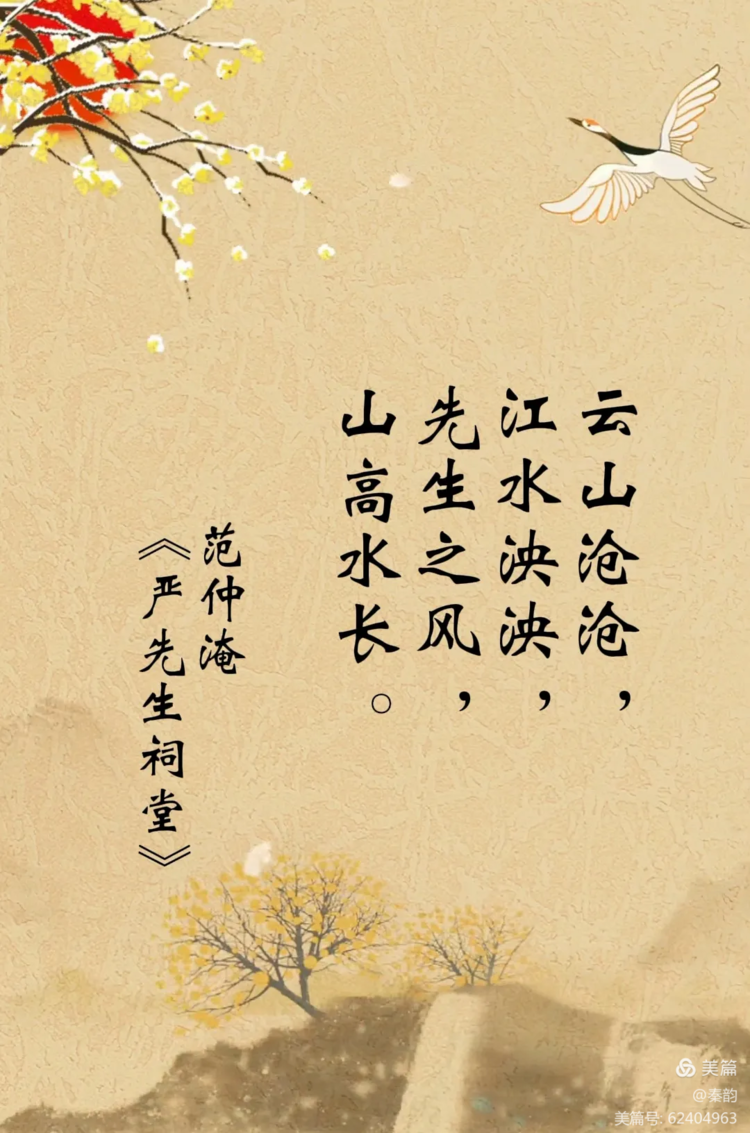 云山沧沧，
江水泱泱，
先生之风，
山高水长。
范仲淹
《严先生祠堂》
美篇
@秦韵
美篇号: 62404963